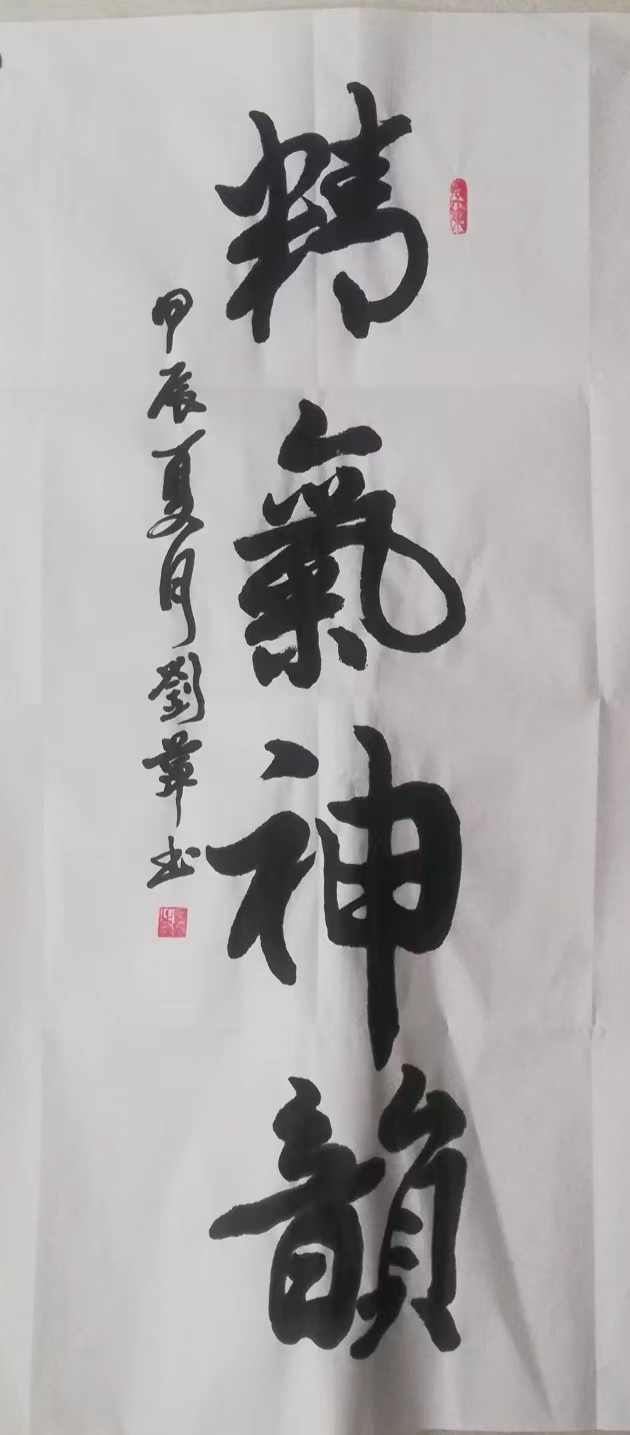 精氣神韻
甲辰夏月劉葦书